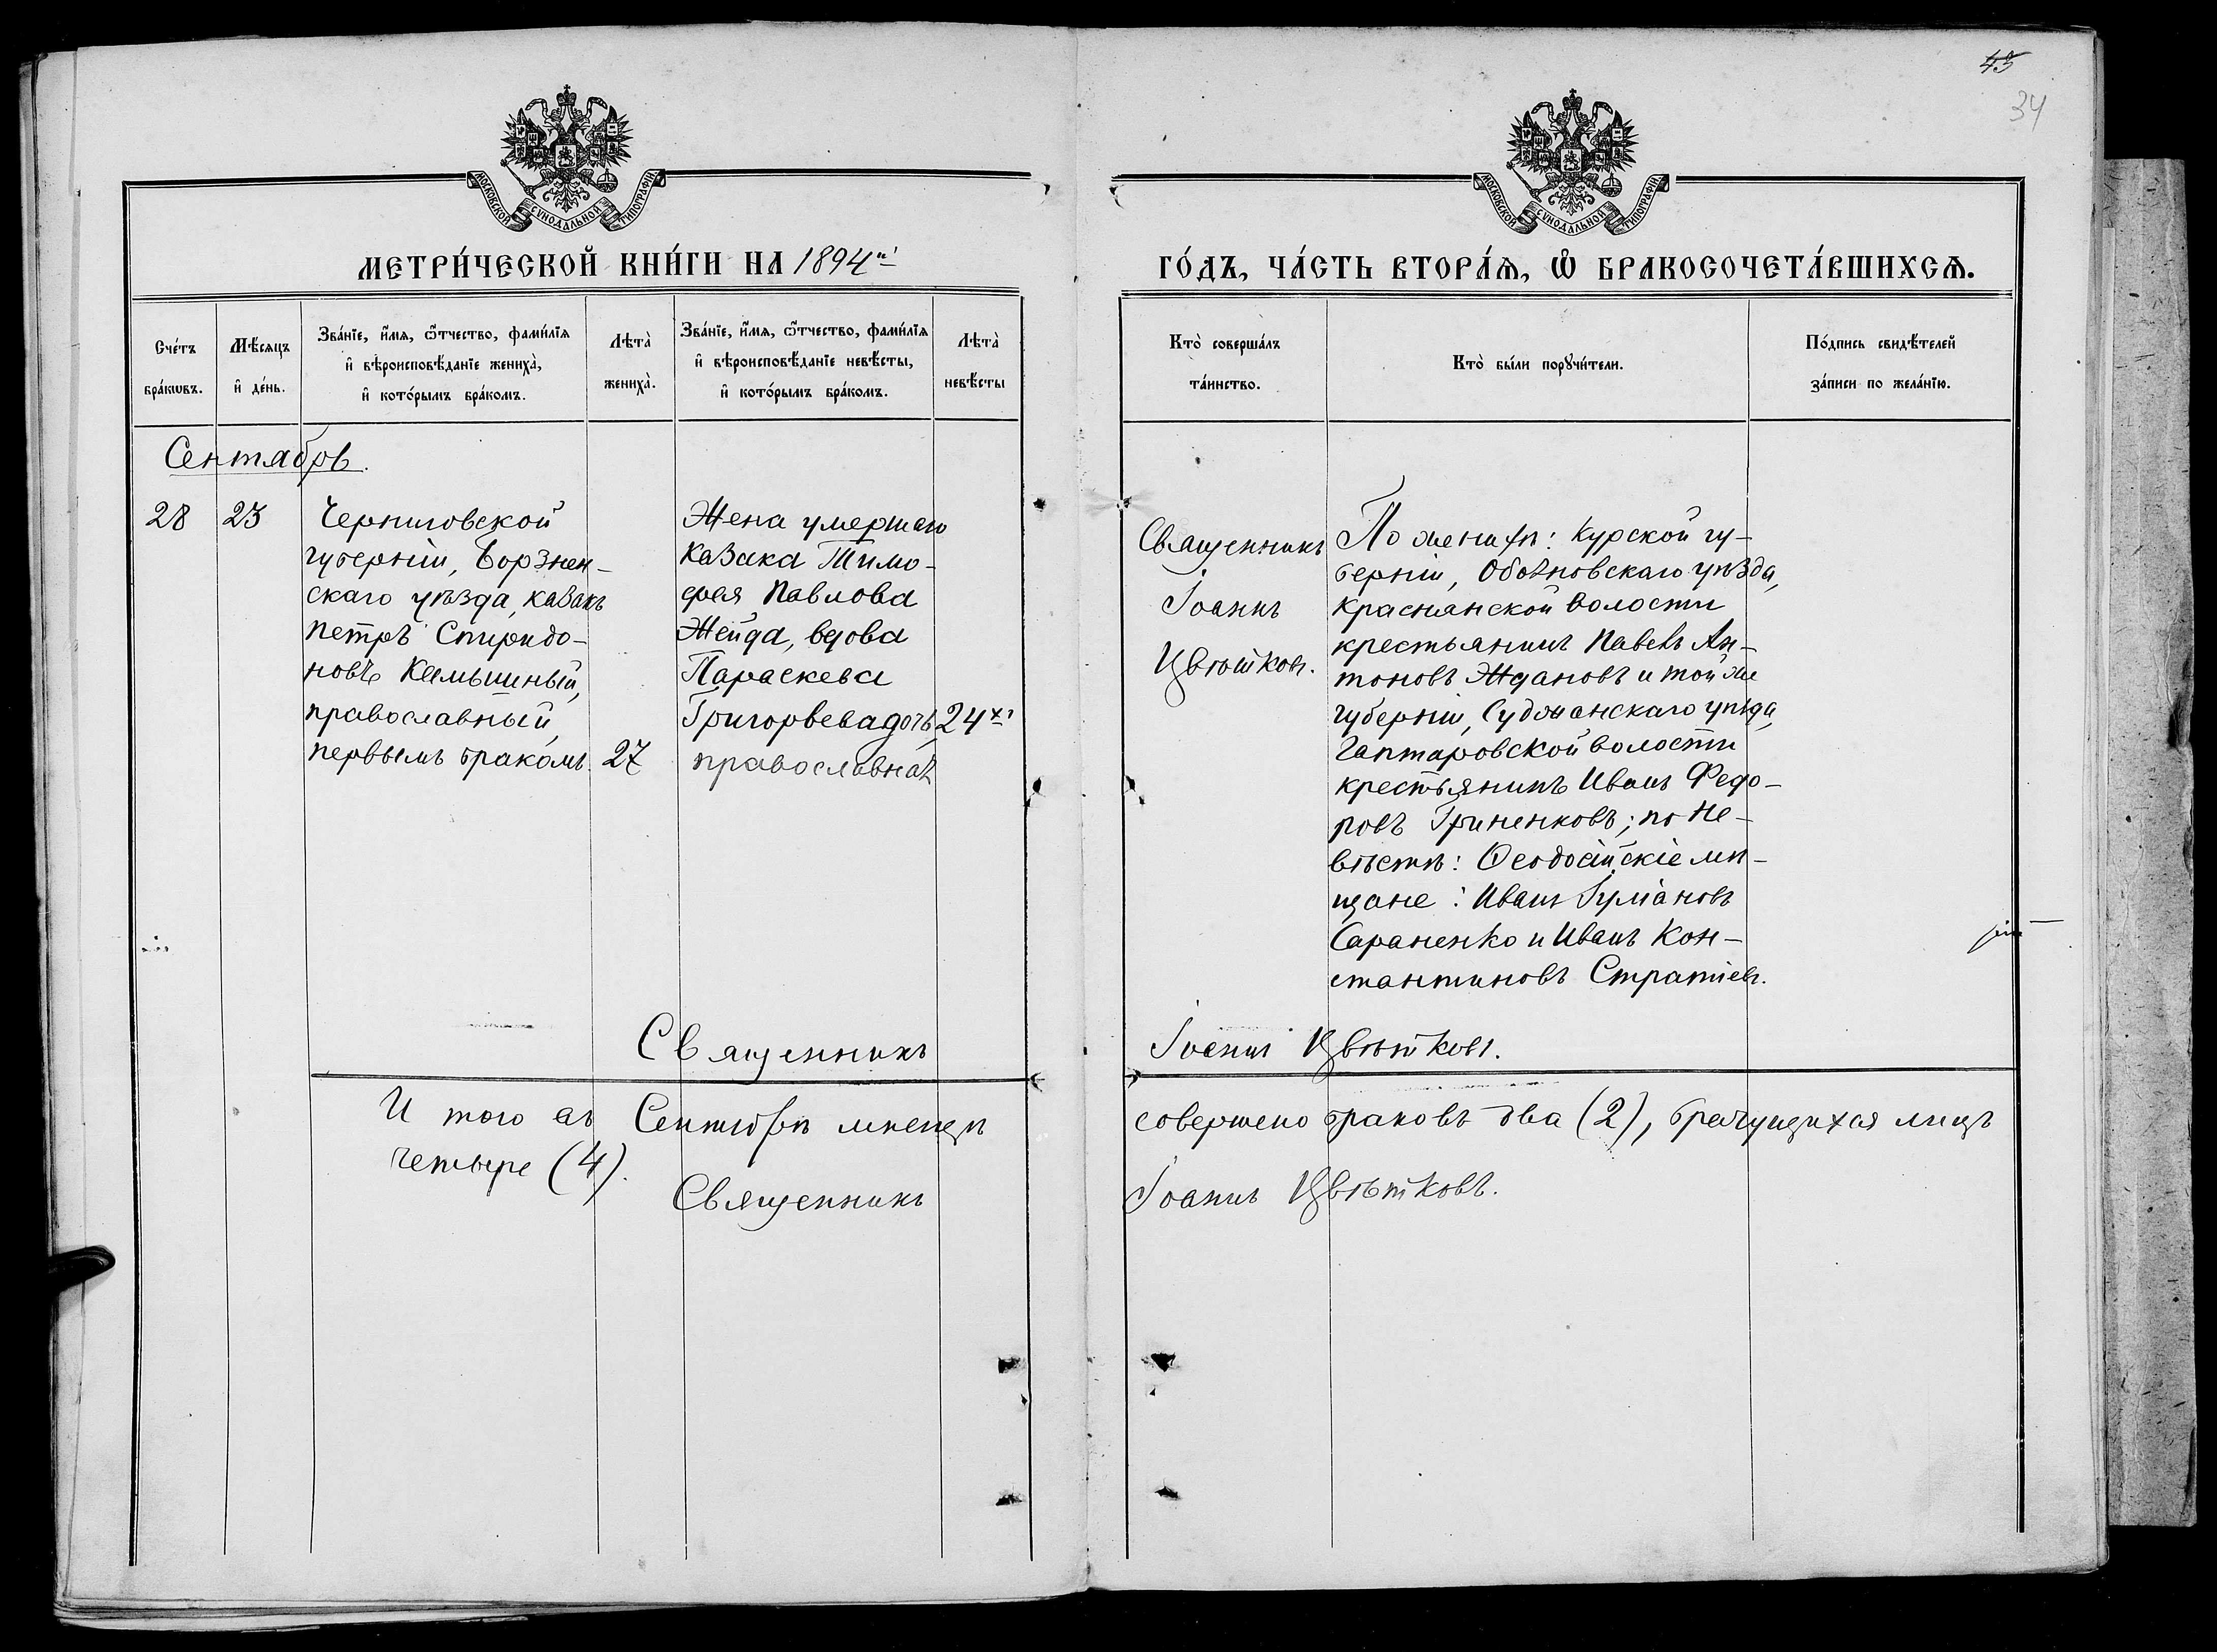 45
34
МОСКОВСКОЙ СѴНОДАЛЬНОЙ ТИПОГРАФІИ
МОСКОВСКОЙ СѴНОДАЛЬНОЙ ТИПОГРАФІИ
МЕТРИ́ЧЕСКОЙ КНИ́ГИ НА 1894й
ГО́ДЪ, ЧА́СТЬ ВТОРА́Ѧ, Ѡ҆ БРАКОСОЧЕТА́ВШИХСѦ.
Сче́тъ бра́кѡвъ.
Мѣ́сѧцъ и҆ де́нь.
Зва́нїе, и҆́мѧ, ѻ҆́тчество, фами́лїѧ
и҆ вѣроисповѣ́данїе жениха̀,
и҆ кото́рымъ бра́комъ.
Лѣта̀ жениха̀.
Зва́нїе, и҆́мѧ, ѻ҆́тчество, фами́лїѧ
и҆ вѣроисповѣ́данїе невѣ́сты,
и҆ кото́рымъ бра́комъ.
Лѣта̀ невѣ́сты
Кто̀ соверша́лъ та́инство.
Кто̀ бы́ли порꙋчи́тели.
По́дпись свидѣ́телей за́писи по жела́нїю.
Сентябрь.
28
23
Черниговской
губерніи, Борзнен-
скаго уѣзда, казакъ
Петръ Спиридо-
новъ Камышный,
православный,
первымъ бракомъ.
27
Жена умершаго
казака Тимо-
фея Павлова
Жейда, вдова
Параскева
Григорьева дочь,
православная
24хъ
Священникъ
Іоаннъ
Цвѣтковъ.
По женихѣ: Курской гу-
берніи, Обоянковскаго уѣзда,
Краснянской волости
крестьянинъ Павелъ Ан-
тоновъ Ждановъ и той же
губерніи, Суджанскаго уѣзда,
Гаптаровской волости
крестьянинъ Иванъ Федо-
ровъ Гриненковъ; по не-
вѣстѣ: Ѳеодосійскіе мѣ-
щане: Иванъ
Сараненко и Иванъ Кон-
стантиновъ Стратіевъ.
Священникъ Іоаннъ Цвѣтковъ.
И того въ Сентябрѣ мѣсяцѣ совершено браковъ два (2), брачущихся лицъ
четыре (4).
Священникъ Іоаннъ Цвѣтковъ.